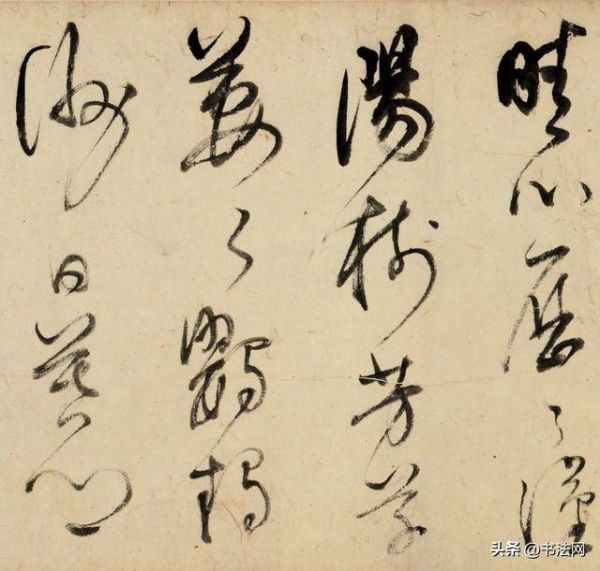 晴川歷〻漢
陽樹芳草
萋〻鸚鵡
洲日暮鄉
头条 @书法网